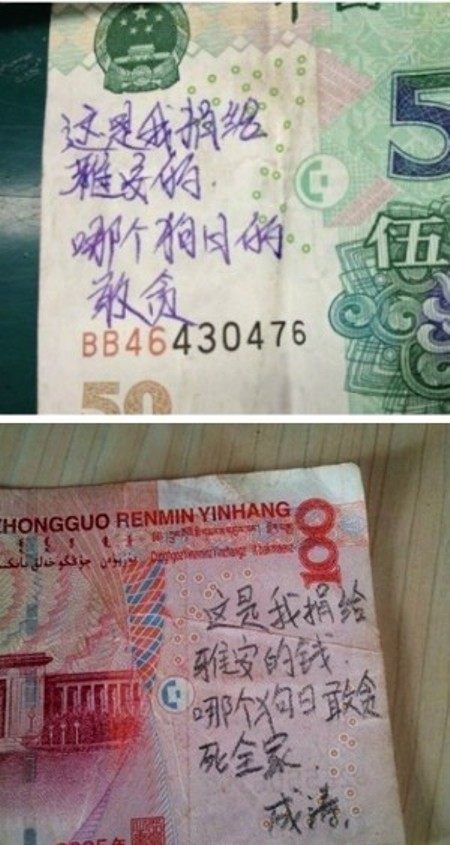 中国
这是我捐给
雅安的.
哪个狗日的
敢贪
5
伍
BB46430476
50
ZHONGGUO RENMIN YINHANG
100
这是我捐给
雅安的钱.
哪个狗日敢贪
死全家.
成涛.
2005年